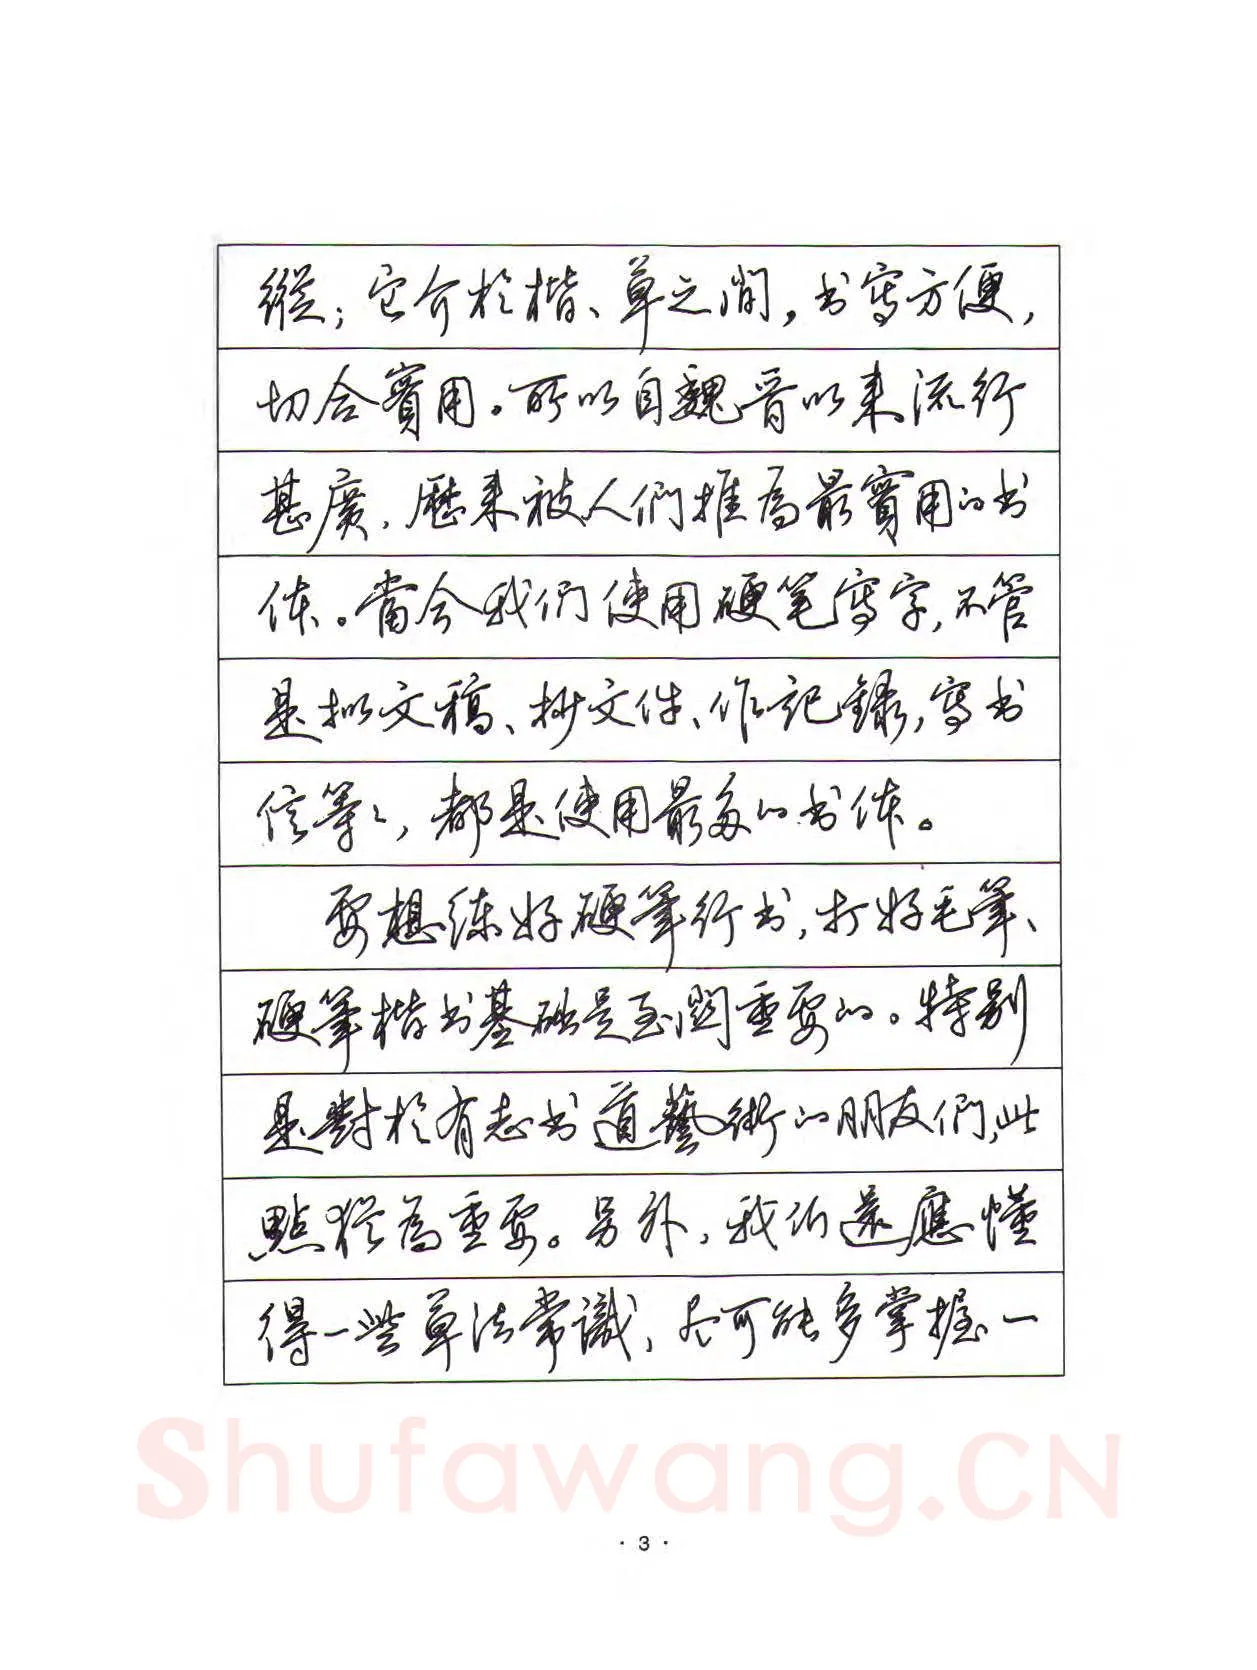 縱；它介於楷、草之間，书寫方便，
切合實用。所以自魏晋以来流行
甚廣，歷来被人們推為最實用的书
体。當今我們使用硬笔寫字，不管
是拟文稿、抄文件、作記録，寫书
信等等，都是使用最多的书体。
要想练好硬筆行书，打好毛筆、
硬筆楷书基础是至関重要的。特别
是對於有志书道藝術的朋友們，此
點犹為重要。另外，我们還應懂
得一些草法常識，尽可能多掌握一
Shufawang.CN
· 3 ·